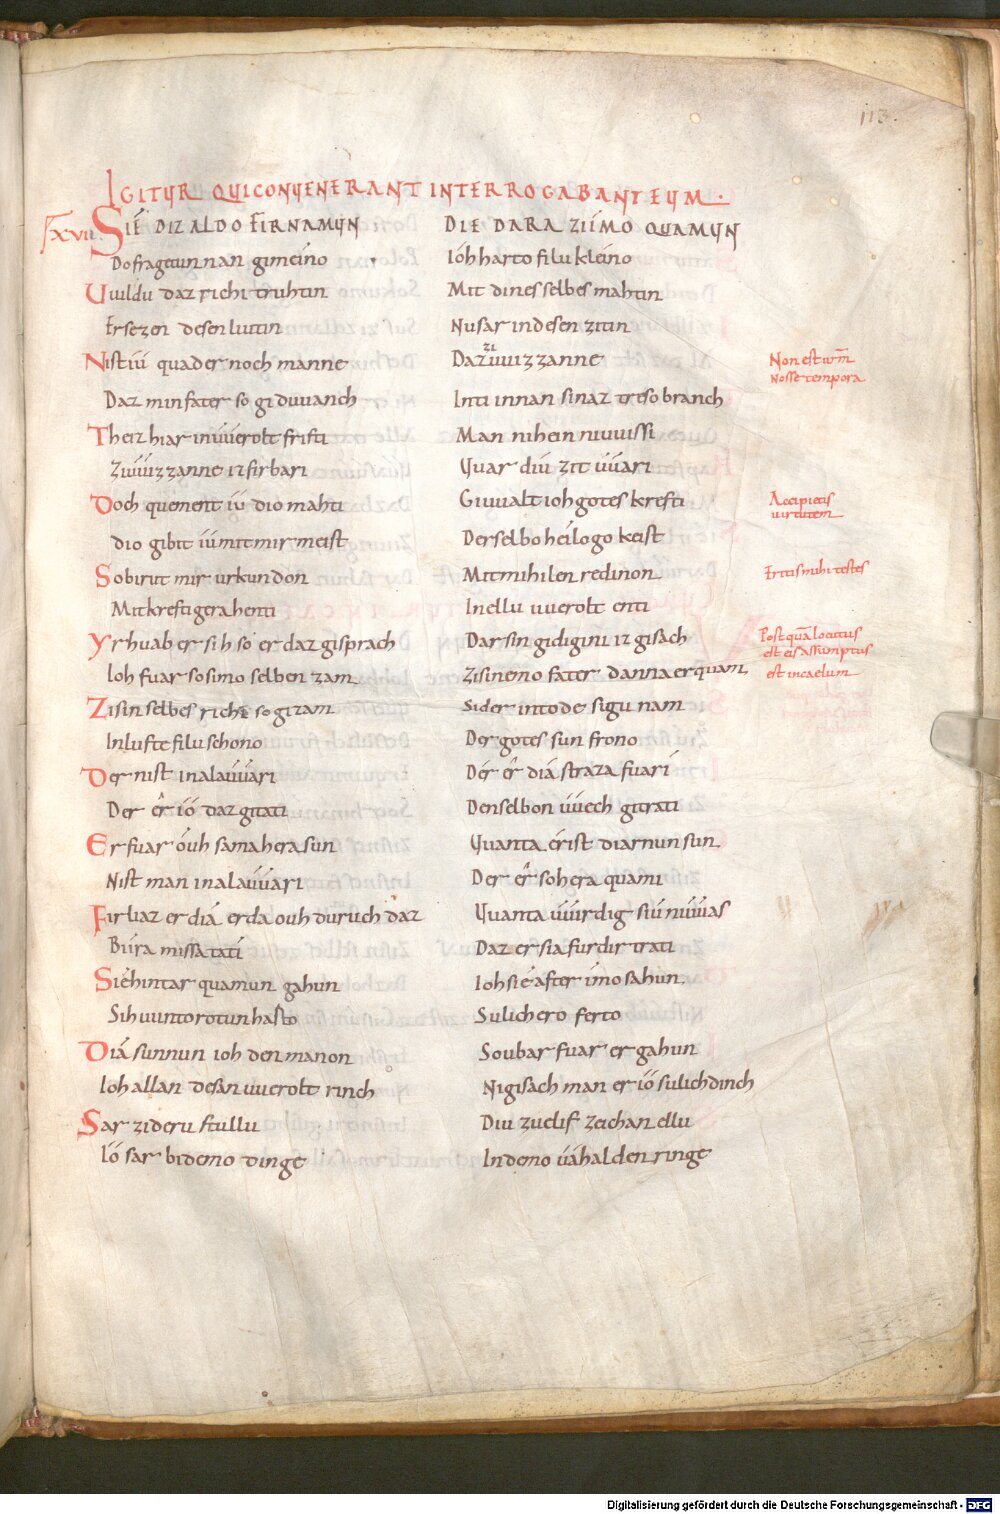 113.
IGITUR QUI CONUENERANT INTERROGABANT EUM.
XVII. SIE DIZ ALDO FIRNAMUN DIE DARA ZIIMO QUAMUN
Do fragetun nan gimeino Ioh harto filu kleino
Uuildu daz richi truhtin Mit dines selbes mahtin
Ersezen desen liutin Nu sar in desen zitin
Nist iu quad er noch manne Daz zi uuizzanne Non est urm
Daz min fater so giduuanch Inti innan sinaz tresо branch nosse tempora
Theiz hiar in uuerolt fristi Man nihein ni uuissi
Zi uuizzanne iz firbari Quar diu zit uuari
Doch quement iu dio mahti Giuualt ioh gotes krefti Accipietis
dio gibit iu mit mir meist Der selbo heilogo keist uirtutem
So birut mir urkundon Mit mihilen redinon Eritis mihi testes
Mit krefti gerahenti In ellu uuerolt enti
Yrhuab er sih so er daz gisprach Dar sin gidigini iz gisach Post quā locutus
Ioh fuar so simo selben zam Zi sinemo fater danna er quam est eis assumptus
Zi sin selbes richi so gizam Sider in tode sigu nam est in caelum
In lufte filu schono Der gotes sun frono
Der nist in alauuari Der er dia straza fuari
Der er io daz gitati Den selbon uuech gitrati
Er fuar ouh sama hera sun Quanta er ist diarnun sun
Nist man in alauuari Der er so hera quami
Firliaz er dia erda ouh duruch daz Quanta uuirdig siu ni uuas
Biira missatati Daz er sia furdir trati
Sie hintar quamun gahun Ioh sie after imo sahun
Sih uuntorotun hasto Sulichero ferto
Dia sunnun ioh den manon So ubar fuar er gahun
Ioh allan desan uuerolt rinch Ni gisach man er io sulich dinch
Sar zi deru stullu Diu zuelif zeichan ellu
Io sar bi demo dinge In demo uahalden ringe
Digitalisierung gefördert durch die Deutsche Forschungsgemeinschaft - DFG